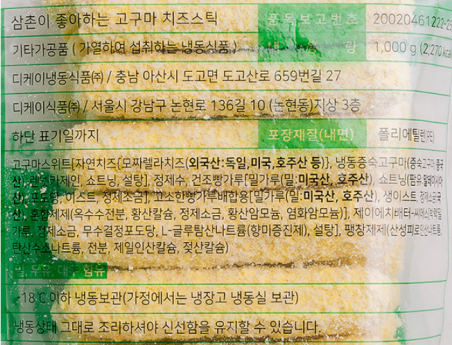 삼촌이 좋아하는 고구마 치즈스틱 품목보고번호 20020461222-28
기타가공품 ( 가열하여 섭취하는 냉동식품 ) 량 1,000 g (2,270 kcal
디케이냉동식품㈜ / 충남 아산시 도고면 도고산로 659번길 27
디케이식품㈜ / 서울시 강남구 논현로 136길 10 (논현동)지상 3층
하단 표기일까지 포장재질(내면) 폴리에틸렌(PE)
고구마스위트[자연치즈{모짜렐라치즈(외국산:독일,미국,호주산 등)}, 냉동증숙고구마(증숙고구마:중국
산), 쇼트닝, 설탕], 정제수, 건조빵가루[밀가루(밀:미국산, 호주산), 쇼트닝(팜유:말레이시아
산), 포도당, 이스트, 정제소금], 고소한빵가루배합용[밀가루(밀:미국산, 호주산), 생이스트, 정제소금
산, 혼합제제(옥수수전분, 황산칼슘, 정제소금, 황산암모늄, 염화암모늄)], 제이에치배터
가루, 정제소금, 무수결정포도당, L-글루탐산나트륨(향미증진제), 설탕], 팽창제제(산성피로인산나트륨,
탄산수소나트륨, 전분, 제일인산칼슘, 젖산칼슘)
밀, 우유, 대두 함유
-18℃이하 냉동보관(가정에서는 냉장고 냉동실 보관)
냉동상태 그대로 조리하셔야 신선함을 유지할 수 있습니다.